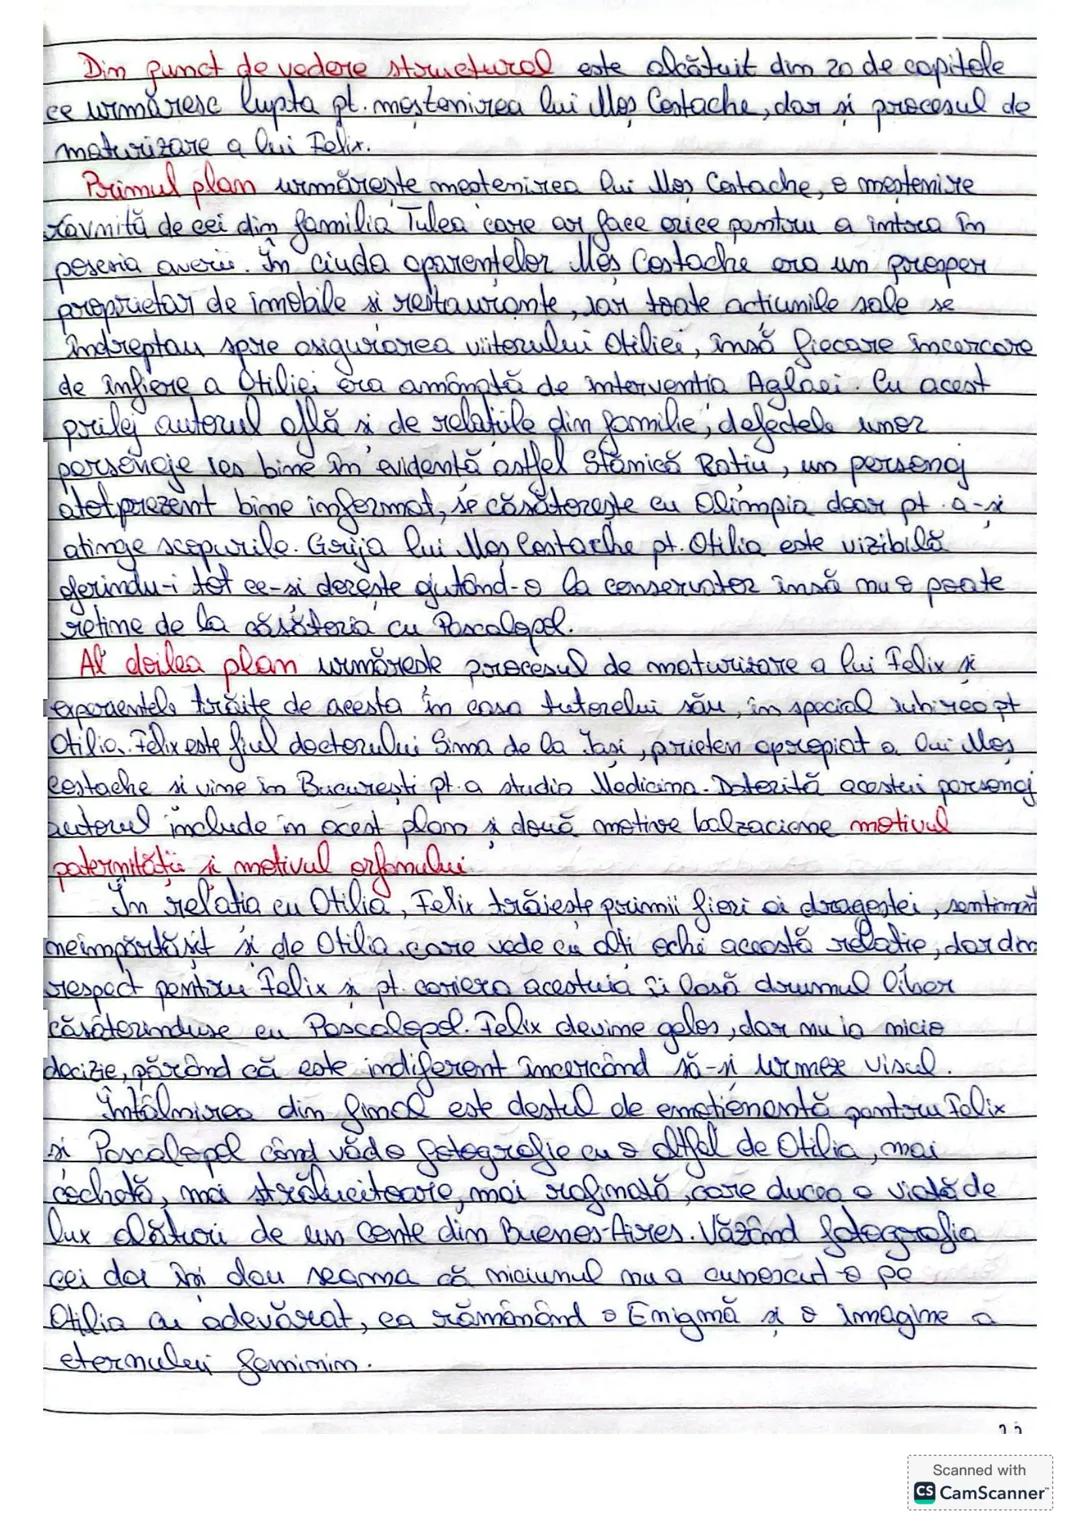 Din punct de vedere structural este alcătuit din 20 de capitole
ce urmăresc lupta pt. moștenirea lui Moș Costache, dar și procesul de
maturizare a lui Felix.
Primul plan urmărește moștenirea lui Moș Costache, o moștenire
râvnită de cei din familia Tulea care ar face orice pentru a intra în
posesia averii. În ciuda aparențelor Moș Costache era un prosper
proprietar de imobile și restaurante, iar toate acțiunile sale se
îndreptau spre asigurarea viitorului Otiliei, însă fiecare încercare
de înfiere a Otiliei era amânată de intervenția Aglaei. Cu acest
prilej autorul află și de relațiile din familie; defectele unor
personaje ies bine în evidență astfel Stănică Rațiu, un personaj
atotprezent bine informat, se căsătorește cu Olimpia doar pt. a-și
atinge scopurile. Grija lui Moș Costache pt. Otilia este vizibilă
oferindu-i tot ce-și dorește ajutând-o la conservator însă nu o poate
reține de la căsătoria cu Pascalopol.
Al doilea plan urmărește procesul de maturizare a lui Felix și
experiențele trăite de acesta în casa tutorelui său, în special iubirea pt
Otilia. Felix este fiul doctorului Sima de la Iași, prieten apropiat a lui Moș
Costache și vine în București pt. a studia Medicina. Datorită acestui personaj
autorul include în acest plan și două motive balzaciene motivul
paternității și motivul orfanului.
În relația cu Otilia, Felix trăiește primii fiori ai dragostei, sentiment
neîmpărtășit și de Otilia care vede cu alți ochi această relație, dar din
respect pentru Felix și pt. cariera acestuia îi lasă drumul liber
căsătorinduse cu Pascalopol. Felix devine gelos, dar nu ia nicio
decizie, părând că este indiferent încercând să-și urmeze visul.
Întâlnirea din final este destul de emoționantă pentru Felix
și Pascalopol când văd o fotografie cu o altfel de Otilia, mai
cochetă, mai strălucitoare, mai rafinată, care ducea o viață de
lux alături de un conte din Buenos-Aires. Văzând fotografia
cei doi își dau seama că niciunul nu a cunoscut-o pe
Otilia cu adevărat, ea rămânând o Enigmă și o imagine a
eternului feminin.
Scanned with
CS CamScanner